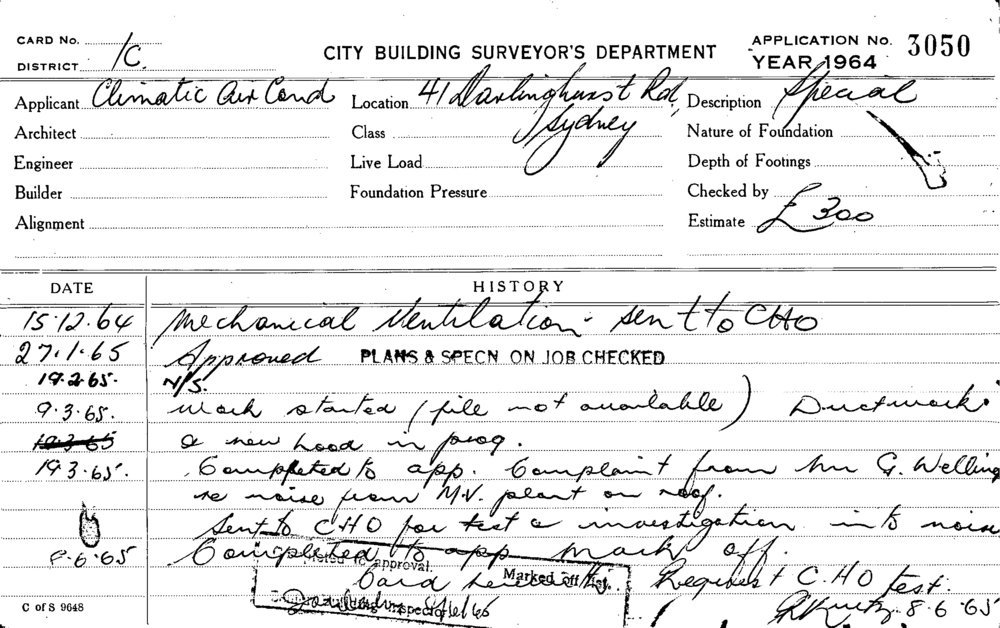 CARD No.
DISTRICT 1C.
CITY BUILDING SURVEYOR'S DEPARTMENT
APPLICATION No. 3050
YEAR 1964
Applicant Climatic Air Cond Location 41 Darlinghurst Rd, Description Special
Architect Class Sydney Nature of Foundation
Engineer Live Load Depth of Footings
Builder Foundation Pressure Checked by
Alignment Estimate £300
DATE HISTORY
15.12.64 Mechanical Ventilation - sent to CHO
27.1.65 Approved PLANS & SPECN ON JOB CHECKED
19.2.65. N/S.
9.3.65. Work started (file not available) Ductwork
19.3.65 & new hood in prog.
19.3.65. Completed to app. Complaint from Mr G. Welling
re noise from M.V. plant on roof.
Sent to CHO for test & investigation into noise
8.6.65 Completed to app mark off.
approval. Marked off
Card Request C.HO test.
Inspector
8.6.65
C of S 9648